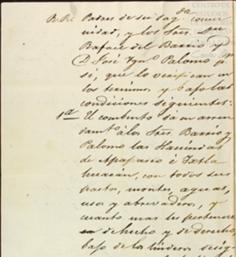 R.R. Padres de su sag.da comu
nidad, y los Sres. Dn
Rafael del Barrio y
D. José Ygn.o Palomo p.r
sí, que lo verifican en
los términos y bajo las
condiciones siguientes.
1.a El combento da en arren
dam.to a los Sres. Barrio y
Palomo las Haciendas
de Apapasco é Tatla
huacan, con todos sus
pastos, montes, aguas,
usos y abrevaderos, y
cuanto mas les pertenece
de hecho y de derecho,
bajo de los linderos